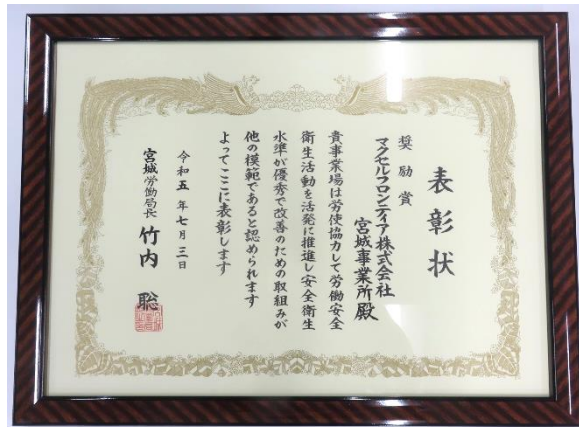 表彰状
奨励賞
マクセルフロンティア株式会社
宮城事業所殿
貴事業場は労使協力して労働安全
衛生活動を活発に推進し安全衛生
水準が優秀で改善のための取組みが
他の模範であると認められます
よってここに表彰します
令和五年七月三日
宮城労働局長 竹内 聡